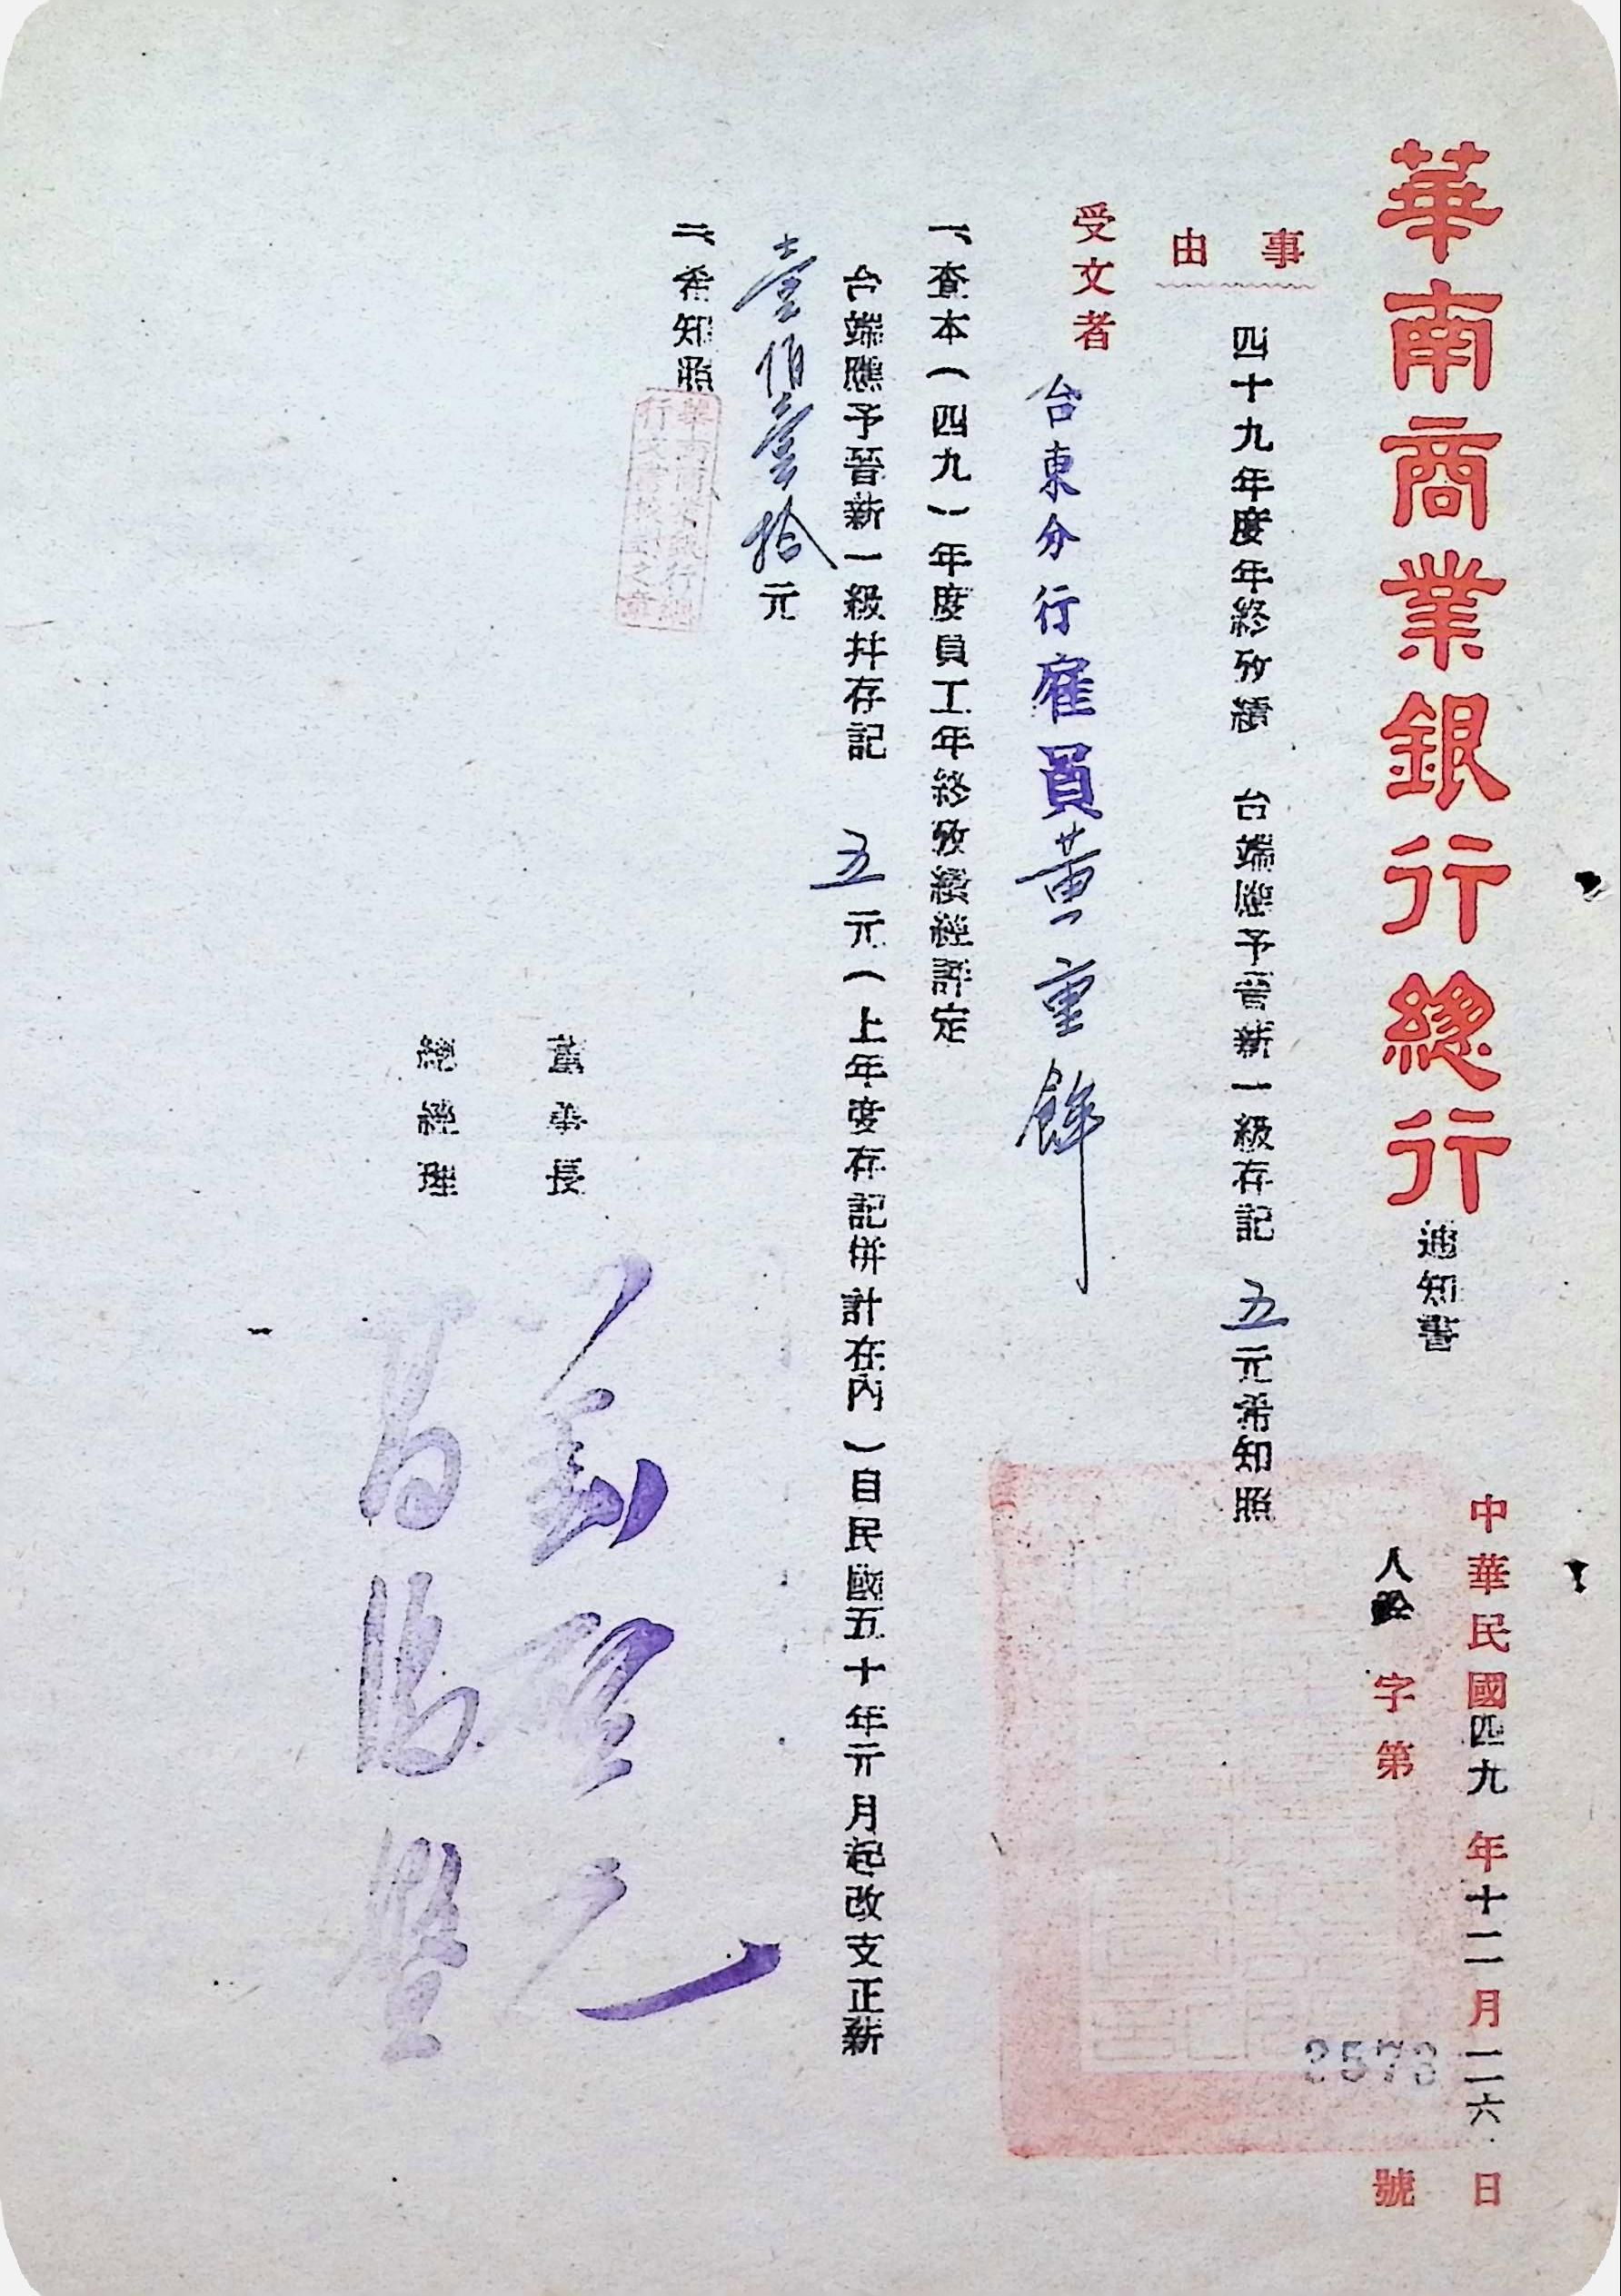 華南商業銀行總行通知書
中華民國四九年十二月二六日
人 字第 2573 號
事由 四十九年度年終攷績 台端應予晉薪一級存記 五元希知照
受文者 台東分行雇員黃重鋒
一、查本(四九)年度員工年終攷績經評定
台端應予晉薪一級并存記 五元(上年度存記併計在內)自民國五十年元月起改支正薪
壹佰壹拾元
二、希知照
華南商業銀行總
行文書校對之章
董事長
總經理